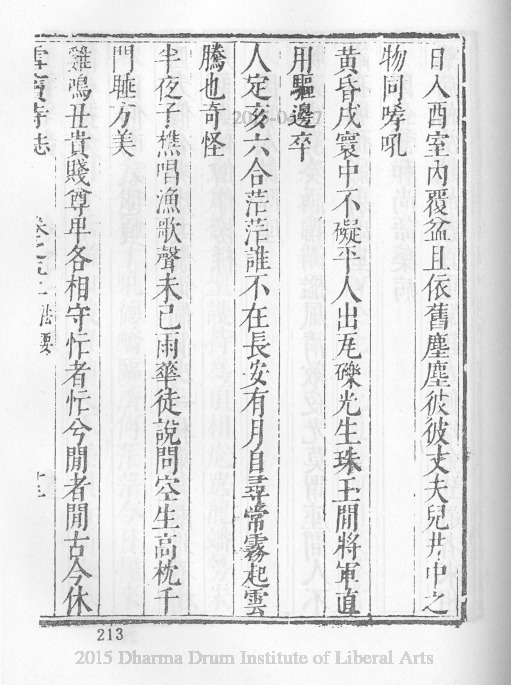 日入酉室內覆盆且依舊塵塵彼彼丈夫兒井中之
物同哮吼
黃昏戌寰中不礙平人出瓦礫光生珠玉閒將軍直
用驅邊卒
人定亥六合茫茫誰不在長安有月自尋常霧起雲
騰也奇怪
半夜子樵唱漁歌聲未已雨華徒說問空生高枕千
門睡方美
雞鳴丑貴賤尊卑各相守忙者忙兮閒者閒古今休
雲竇寺志 卷之 十三
213
2015 Dharma Drum Institute of Liberal Arts